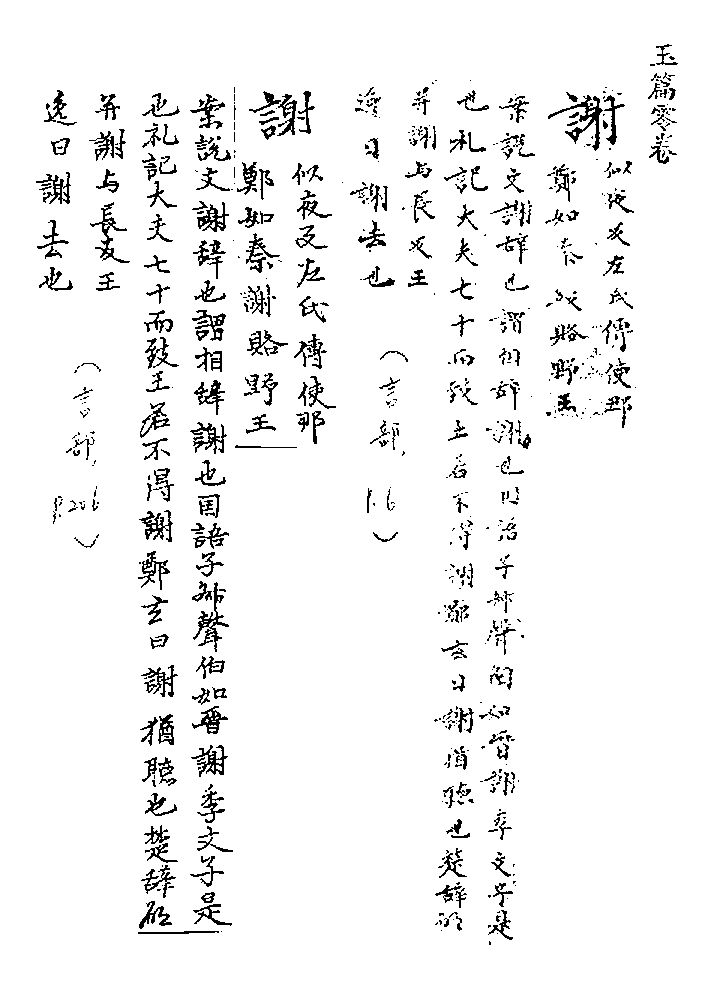 玉篇零卷
謝
似夜反左氏傳使耶
鄭如秦謝賂野王
案説文謝辞也謂相辭謝也国語子叔聲伯如晉謝季文子是
也礼記大夫七十而致王若不得謝鄭玄曰謝猶聴也楚辞
并謝与長友王
逸曰謝去也
(言部, P.6)
謝
似夜反左氏傳使耶
鄭如秦謝賂野王
案説文謝辞也謂相辭謝也国語子叔聲伯如晉謝季文子是
也礼記大夫七十而致王君不得謝鄭玄曰謝猶聴也楚辞
并謝与長友王
逸曰謝去也
(言部, P.206)